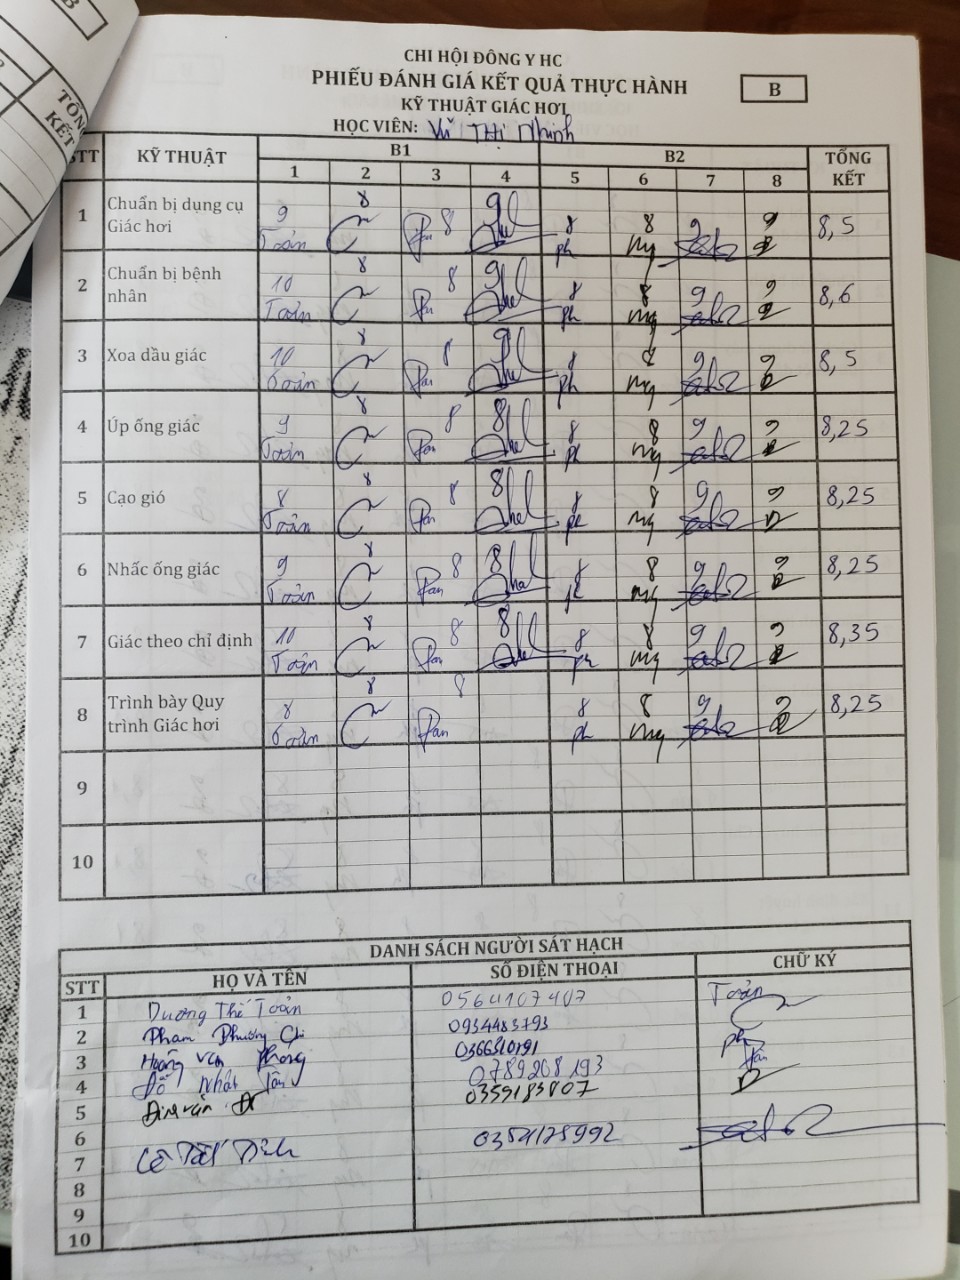 B
TỔNG
KẾT
CHI HỘI ĐÔNG Y HC
PHIẾU ĐÁNH GIÁ KẾT QUẢ THỰC HÀNH
B
KỸ THUẬT GIÁC HƠI
HỌC VIÊN: Vũ Thị Nhinh
STT KỸ THUẬT B1 B2 TỔNG KẾT
1 2 3 4 5 6 7 8
1 Chuẩn bị dụng cụ Giác hơi 9 8 8 9 8 8 9 9 8,5
Toản ph mg
2 Chuẩn bị bệnh nhân 10 8 8 9 8 8 9 9 8,6
Toản ph mg
3 Xoa dầu giác 10 8 8 9 8 8 9 9 8,5
Toản ph mg
4 Úp ống giác 9 8 8 8 8 8 9 9 8,25
Toản ph mg
5 Cạo gió 8 8 8 8 8 8 9 9 8,25
Toản ph mg
6 Nhấc ống giác 9 8 8 8 8 8 9 9 8,25
Toản ph mg
7 Giác theo chỉ định 10 8 8 8 8 8 9 9 8,35
Toản ph mg
8 Trình bày Quy trình Giác hơi 8 8 8 8 8 9 9 8,25
Toản ph mg
9
10
DANH SÁCH NGƯỜI SÁT HẠCH
STT HỌ VÀ TÊN SỐ ĐIỆN THOẠI CHỮ KÝ
1 Dương Thế Toản 0564107407 Toản
2 Phạm Phương Chi 0934483793
3 Hoàng Văn Phong ph
4 Đỗ Nhật Tân 0789208193
5 Đinh Văn 0359183807
6
7 Lê Tất 0354128992
8
9
10